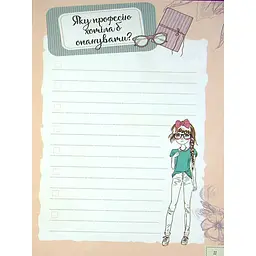 Яку професію
хотіла б
опанувати?